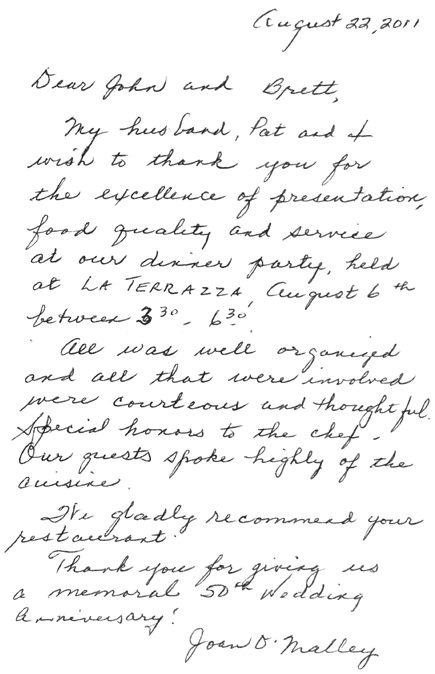 August 22, 2011
Dear John and Brett,
My husband, Pat and I
wish to thank you for
the excellence of presentation,
food quality and service
at our dinner party, held
at LA TERRAZZA, August 6th
between 3:30 - 6:30.
All was well organized
and all that were involved
were courteous and thoughtful.
Special honors to the chef.
Our guests spoke highly of the
cuisine.
We gladly recommend your
restaurant.
Thank you for giving us
a memoral 50th Wedding
Anniversary!
Joan O'Malley